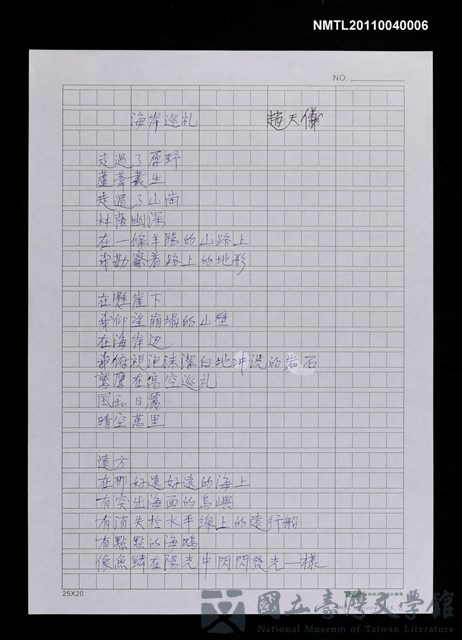 NMTL20110040006
NO.
海岸巡礼 趙天儀
走過了原野
蘆葦叢生
走過了山崗
林蔭幽深
在一條羊腸的山路上
我勘察着路上的地形
在懸崖下
我仰望崩塌的山壁
在海岸邊
我俯視泡沫深白地沖洗的岩石
鷹在高空巡礼
風和日麗
晴空萬里
遠方
在那好遠好遠的海上
有突出海面的島嶼
有消失於水平線上的遠行船
有點點的海鷗
像魚鱗在陽光中閃閃發光一樣
25X20
國立臺灣文學館
National Museum of Taiwan Literature